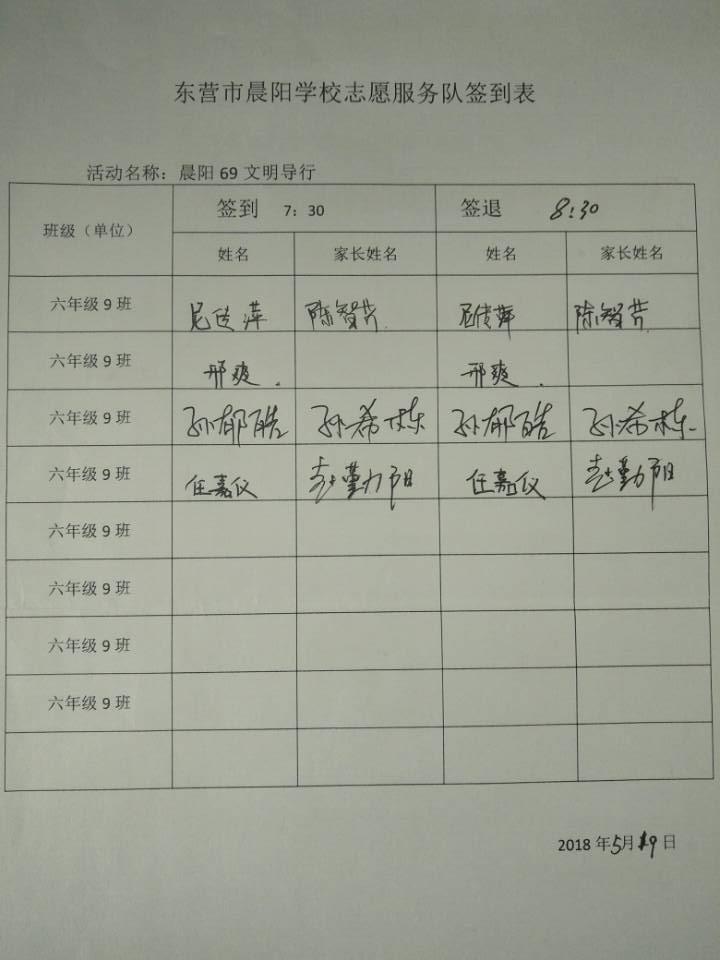 东营市晨阳学校志愿服务队签到表
活动名称：晨阳 69 文明导行
班级（单位） 签到 7：30 签退 8:30
姓名 家长姓名 姓名 家长姓名
六年级 9 班 陈智芹 陈智芹
六年级 9 班 邢爽. 邢爽.
六年级 9 班 孙郁皓 孙希栋 孙郁皓 孙希栋
六年级 9 班 任嘉仪 赵勤阳 任嘉仪 赵勤阳
六年级 9 班
六年级 9 班
六年级 9 班
六年级 9 班
2018 年5月19日